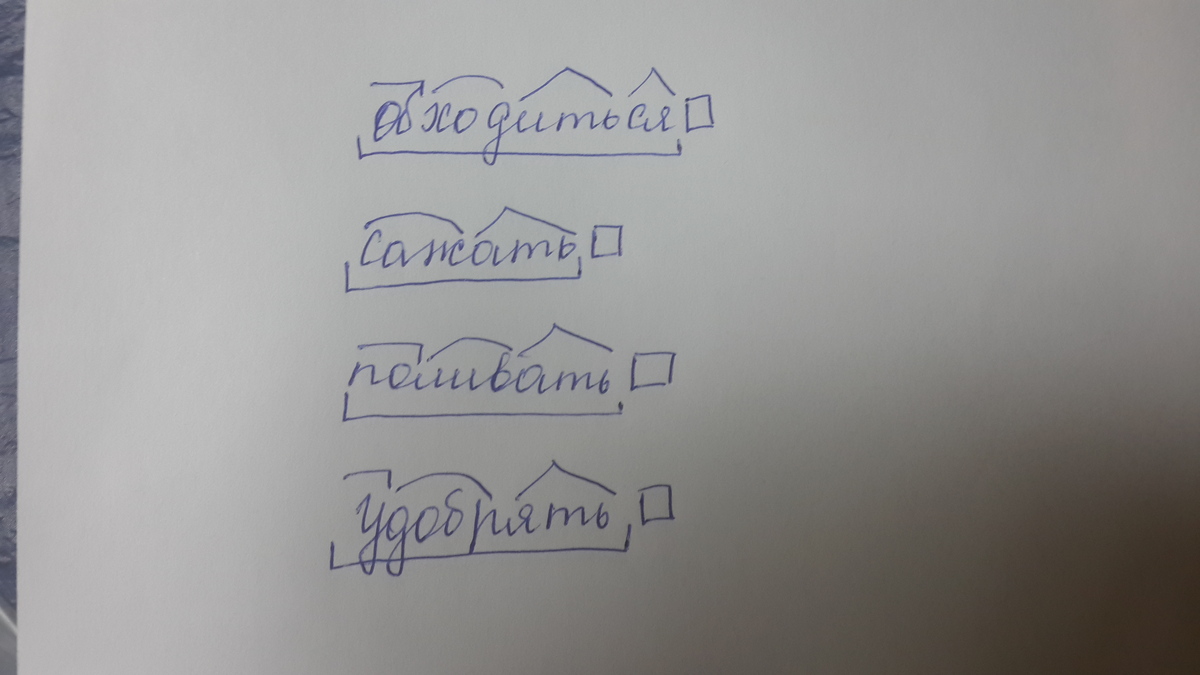 обходиться
сажать
поливать
удобрять